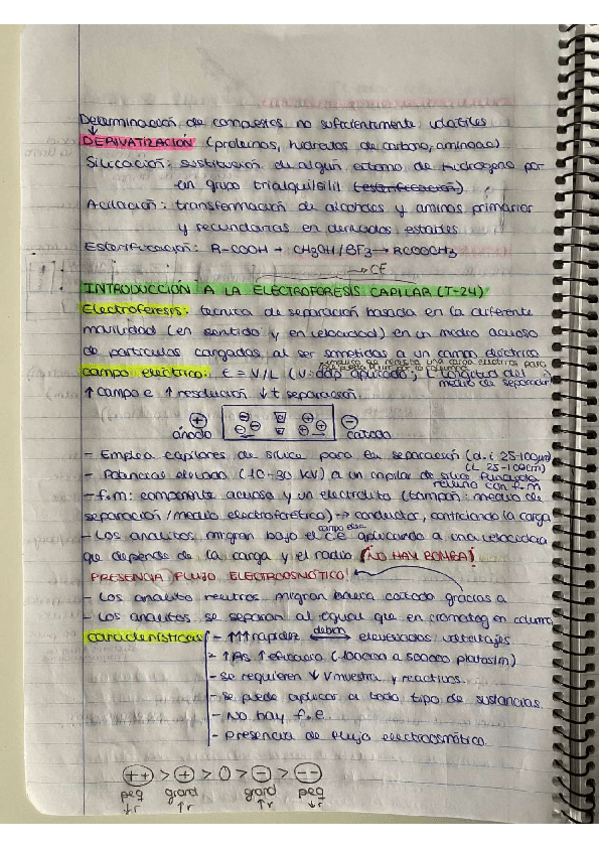 Determinación de compuestos no suficientemente volátiles
↓
DERIVATIZACIÓN (proteínas, hidratos de carbono, aminoác)
Sililación: sustitución de algún átomo de hidrógeno por
un grupo trialquilsilil (esterificación)
Acilación: transformación de alcoholes y aminas primarios
y secundarias en derivados estables
Esterificación: R-COOH + CH3OH/BF3 → RCOOCH3
→ CE
INTRODUCCIÓN A LA ELECTROFORESIS CAPILAR (T-24)
Electroforesis: técnica de separación basada en la diferente
movilidad (en sentido y en velocidad) en un medio acuoso
de partículas cargadas, al ser sometidas a un campo eléctrico
campo eléctrico: E = V/L (V: ddp aplicado; L longitud del
medio de separación
↑ Campo e ↑ resolución ↓ t separación.
+ -
ánodo cátodo
- Emplea capilares de sílice para la separación (d.i 25-100μm)
(L 25-100cm)
- Potencial elevado (10-30 KV) a un capilar de sílice fundida
relleno con f.m
- f.m: componente acuosa y un electrolito (tampón: medio de
separación/medio electroforético) → conductor, controlando la carga
campo eléc
- Los analitos migran bajo el CE aplicando a una velocidad
que depende de la carga y el radio ¡NO HAY BOMBA!
PRESENCIA FLUJO ELECTROOSMÓTICO!
- Los analito neutros migran hacia cátodo gracias a
- Los analitos se separan al igual que en cromatog en columna
características - ↑↑↑ rapidez debido elevados voltajes.
- ↑Rs ↑ eficacia (100000 a 500000 platos/m)
- se requieren ↓ V muestra y reactivos.
- se puede aplicar a todo tipo de sustancias
- No hay f.e.
- Presencia de flujo electroosmótico.
++ > + > 0 > - > --
peq grand grand peq
↓r ↑r ↑r ↓r